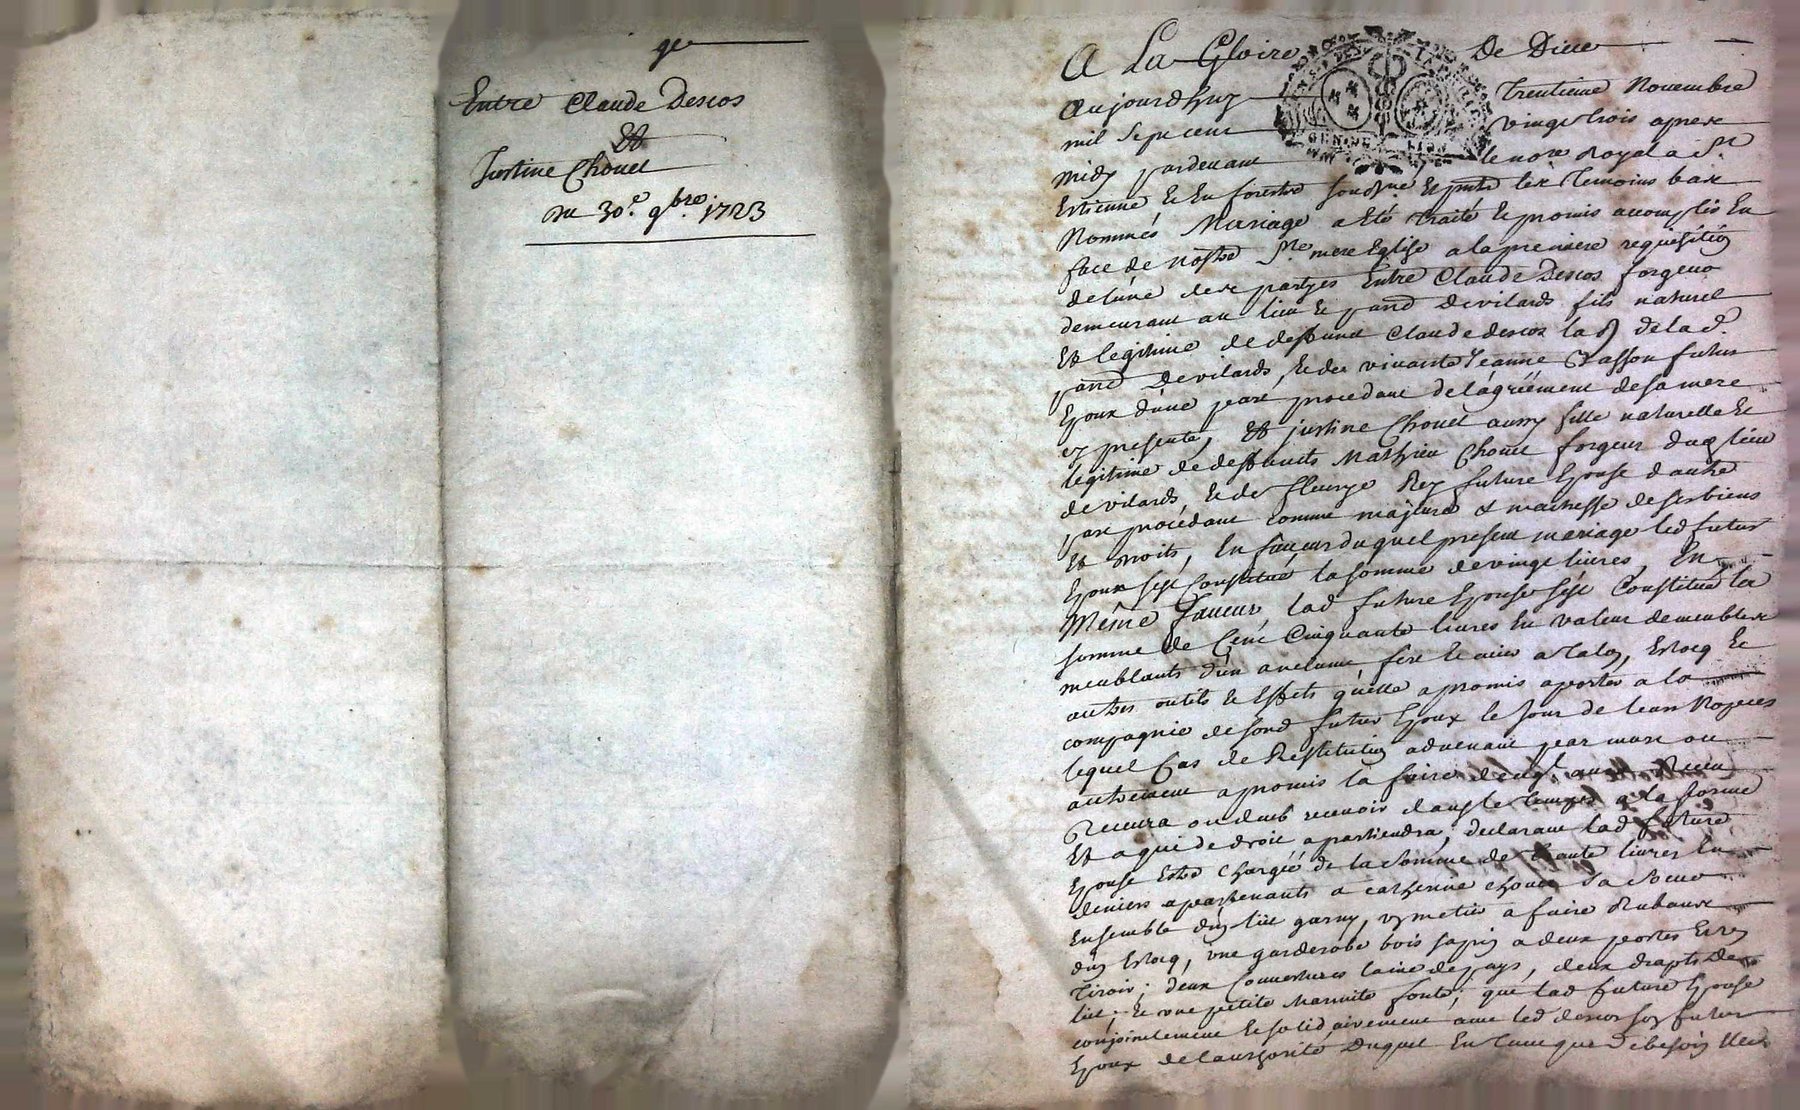 ge
Entre Claude Descos
Et
Justine Chouel
Du 30.e 9bre. 1723
A La Gloire De Dieu
Aujourdhuy Trentieme Novembre
mil Sept cent vingt trois apres
midy pardevant le nore Royal a St
Estienne Et En forestz soubsigne Et les Temoins bas
Nommés Mariage a Eté traité Et promis accomplir En
face de nostre Ste mere Eglise a la premiere requisition
de lune des partyes Entre Claude Descos forgeur
demeurant au lieu Et parr. Devilards fils naturel
Et legitime de deffunt Claude descos la de lad.
parr. Devilards, Et de vivante Jeanne Chasson futur
Epoux dune part procedant de lagréément de sa mere
cy presente, Et justine Chouel aussy fille naturelle Et
legitime de deffuncts Mathieu Chouel forgeur dud lieu
de vilards Et de fleurye Rey future Epouse dautre
part procédant comme majeure & maitresse de ses biens
Et droits, En faveur duquel present mariage led futur
Epoux sest Constitué la somme de vingt livres, En
Même faveur lad future Epouse sest Constituée la
somme de Cent Cinquante livres En valeur de meubles
meublants dun anclume fer Et acier a Talon, Estocq Et
autres outils Et Effets quelle a promis aporter a la
compagnie de sond futur Epoux le jour de leurs Nopces
lequel Cas de Restitution advenant par mort ou
autrement a promis la faire de ce quil aura Receu
Recevra ou deub recevoir dans le temps a la forme
Et a qui de droit apartiendra, declarant lad future
Epouse Estre Chargéé de la Somme de Trente livres En
deniers apartenants a catherine chouel sa Soeur
Ensemble dun lict garny, un metier a faire Rubans
dun Estocq, une garderobe bois sapin a deux portes Et un
Tiroir; deux Couvertures laine de pays, deux drapts De
lict, Et une petite Marmite fonte; que lad future Epouse
conjointement Et solidairement avec led descos son futur
Epoux de lauthorité Duquel En tant que De besoin Elle